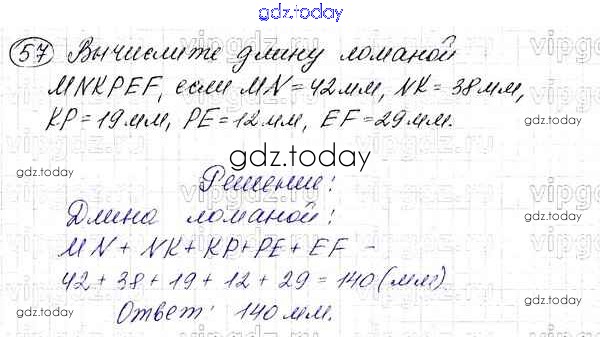 gdz.today
57 Вычислите длину ломаной
MNKPEF, если MN = 42мм, NK = 38мм,
KP = 19мм, PE = 12мм, EF = 29мм.
gdz.today
Решение:
Длина ломаной:
MN + NK + KP + PE + EF =
42 + 38 + 19 + 12 + 29 = 140 (мм)
Ответ: 140 мм.